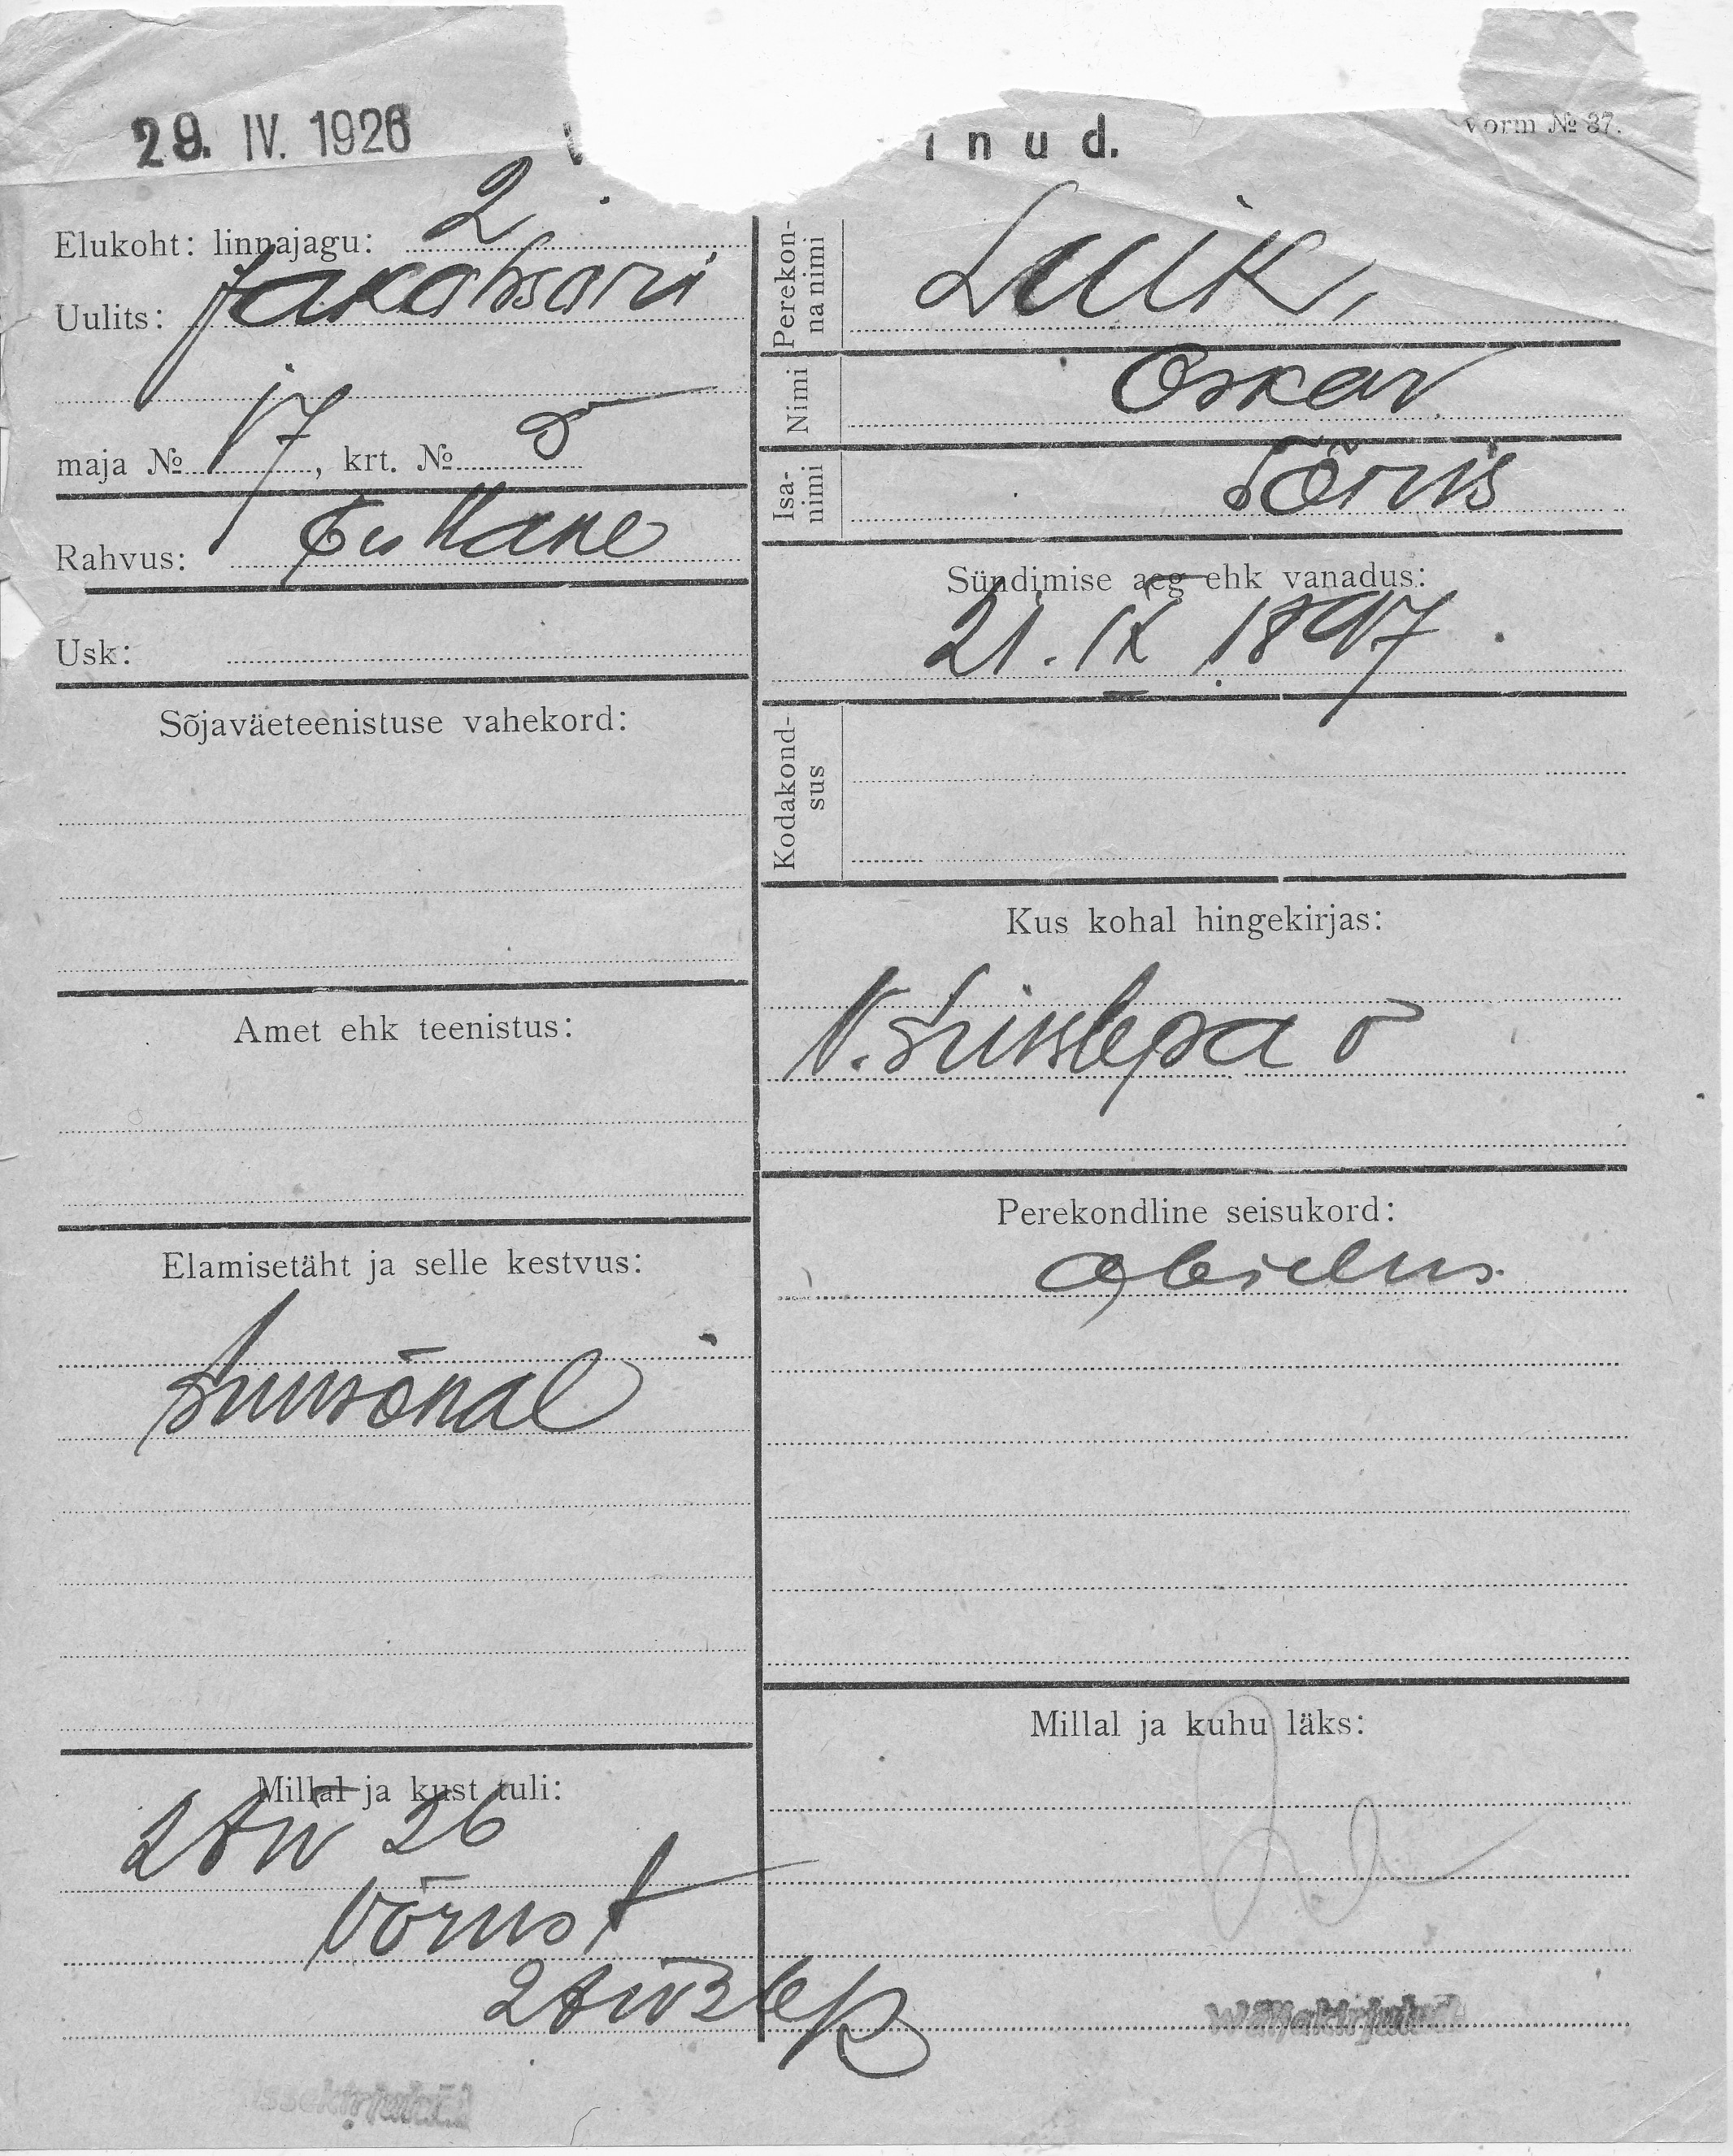 29. IV. 1926
inud.
Vorm № 37.
Elukoht: linnajagu: 2
Uulits: Jakobsoni
maja № 17, krt. № 5
Rahvus: Eestlane
Usk:
Sõjaväeteenistuse vahekord:
Amet ehk teenistus:
Elamisetäht ja selle kestvus:
Suusõnal
Millal ja kust tuli:
26
Võrust
Perekon-
na nimi
Luik,
Nimi
Oskar
Isa-
nimi
Tõnis
Sündimise aeg ehk vanadus:
21. IX 1897
Kodakond-
sus
Kus kohal hingekirjas:
V. Suislepa
Perekondline seisukord:
abielus.
Millal ja kuhu läks:
Wäljakirjutud
Issekirjutud